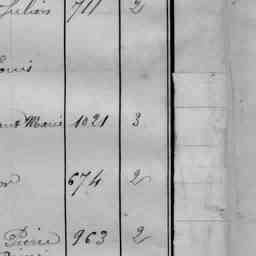 Julien 711 2
Louis
Marie 1021 3
674 2
Pierre 963 2